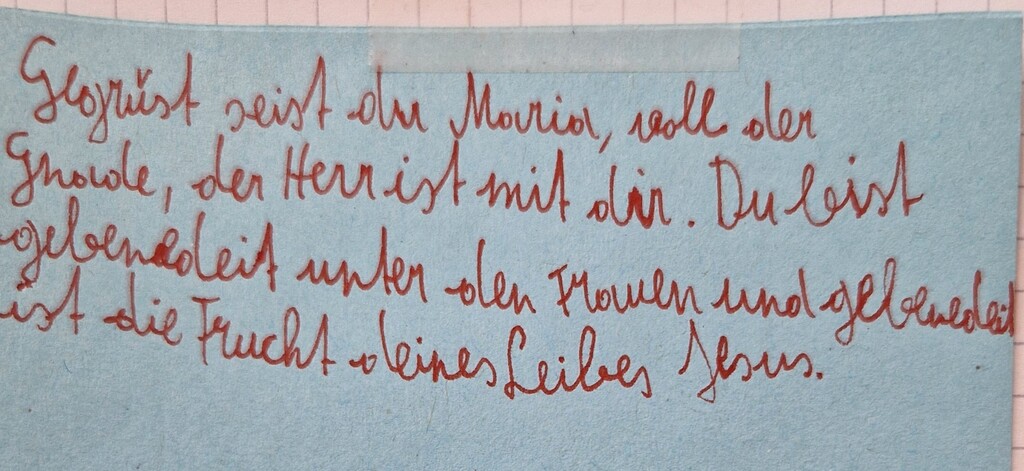 Gegrüst seist du Maria, voll der
Gnade, der Herr ist mit dir. Du bist
gebenedeit unter den Frauen und gebenedeit
ist die Frucht deines Leibes Jesus.